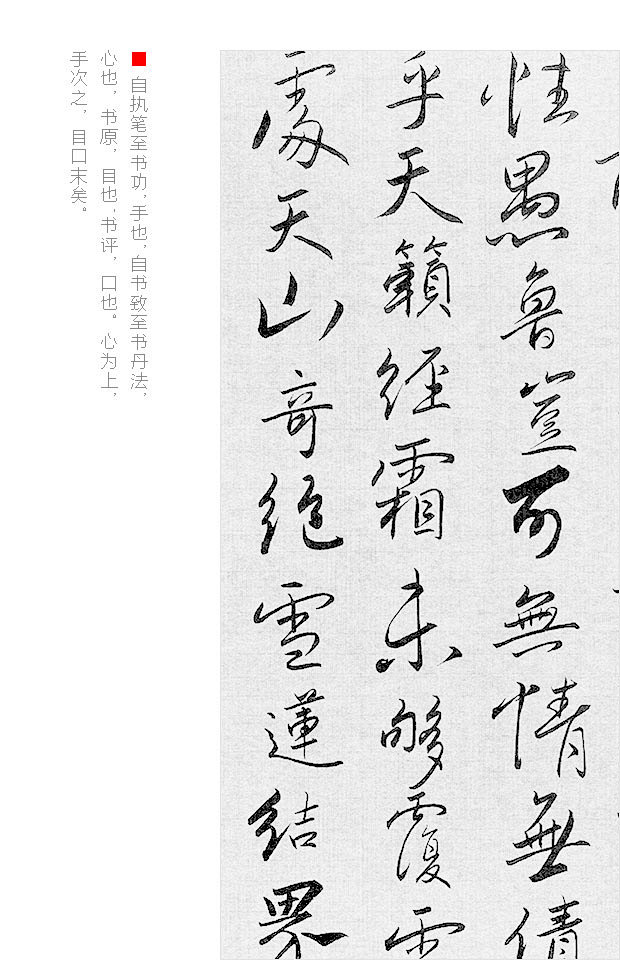 性愚魯豈可無情無倩
乎天籟經霜未够覆
處天山奇絕雪蓮結界
自执笔至书功，手也，自书致至书丹法，
心也，书原，目也，书评，口也。心为上，
手次之，目口末矣。